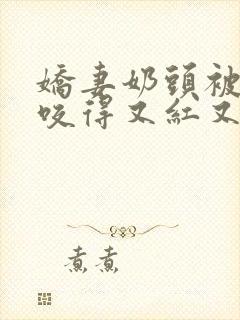 嬌妻奶頭被
咬得又紅又
煮煮